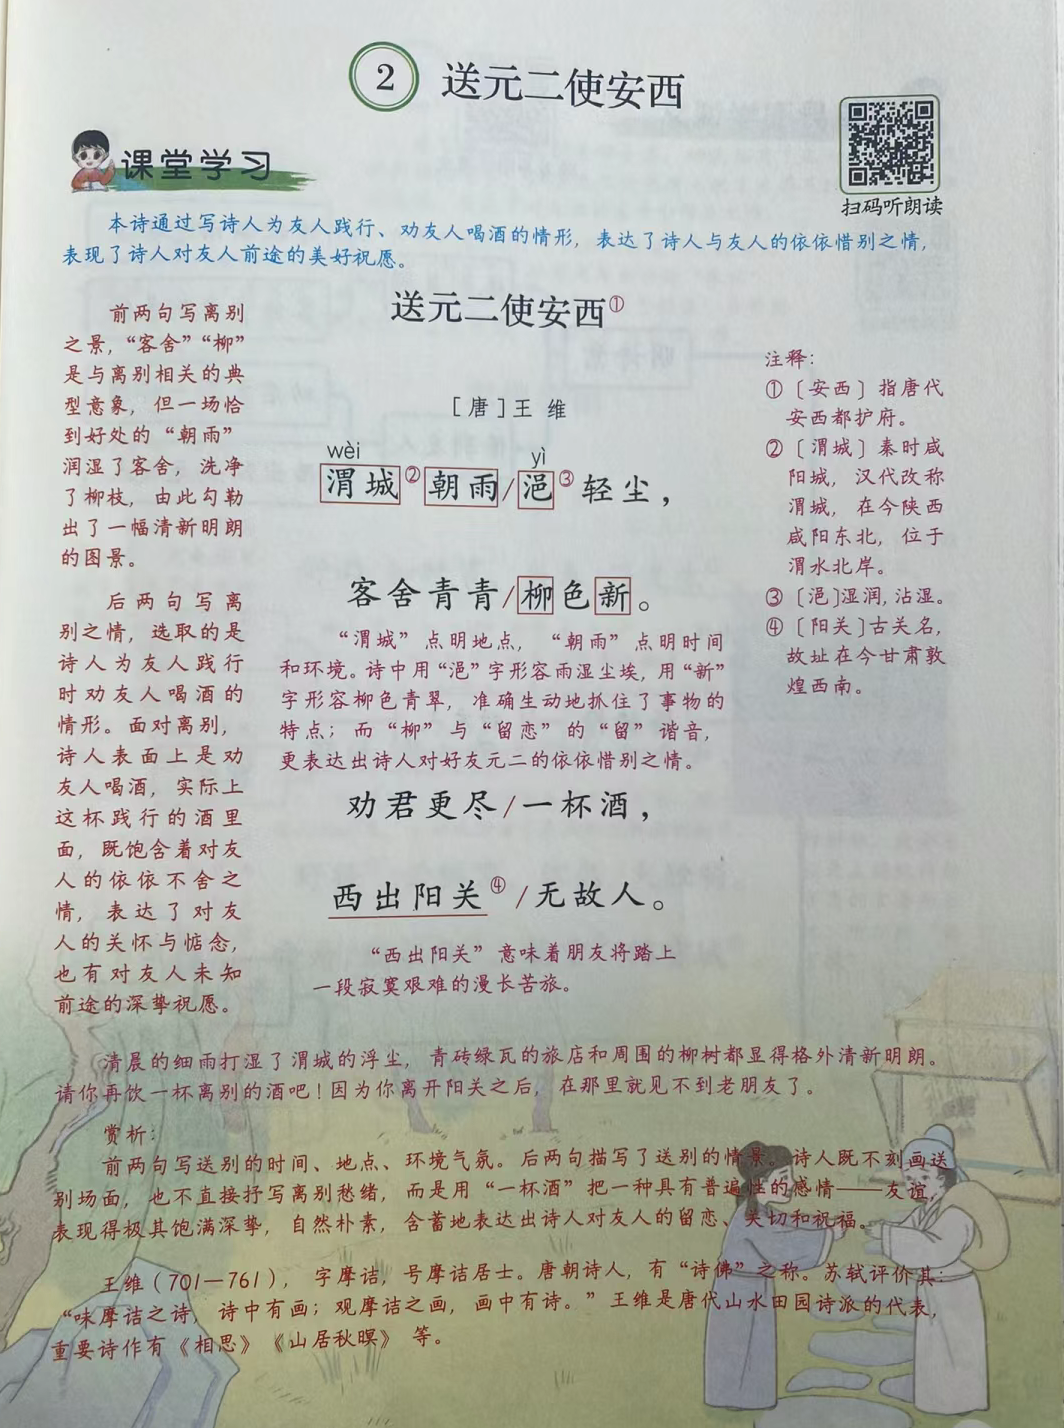 2 送元二使安西
课堂学习
扫码听朗读
本诗通过写诗人为友人践行、劝友人喝酒的情形，表达了诗人与友人的依依惜别之情，
表现了诗人对友人前途的美好祝愿。
送元二使安西①
[唐]王维
前两句写离别
之景，“客舍”“柳”
是与离别相关的典
型意象，但一场恰
到好处的“朝雨”
润湿了客舍，洗净
了柳枝，由此勾勒
出了一幅清新明朗
的图景。
后两句写离
别之情，选取的是
诗人为友人践行
时劝友人喝酒的
情形。面对离别，
诗人表面上是劝
友人喝酒，实际上
这杯践行的酒里
面，既饱含着对友
人的依依不舍之
情，表达了对友
人的关怀与惦念，
也有对友人未知
前途的深挚祝愿。
wèi yì
渭城②朝雨/浥③轻尘，
客舍青青/柳色新。
“渭城”点明地点，“朝雨”点明时间
和环境。诗中用“浥”字形容雨湿尘埃，用“新”
字形容柳色青翠，准确生动地抓住了事物的
特点；而“柳”与“留恋”的“留”谐音，
更表达出诗人对好友元二的依依惜别之情。
劝君更尽/一杯酒，
西出阳关④/无故人。
“西出阳关”意味着朋友将踏上
一段寂寞艰难的漫长苦旅。
注释：
①〔安西〕指唐代
安西都护府。
②〔渭城〕秦时咸
阳城，汉代改称
渭城，在今陕西
咸阳东北，位于
渭水北岸。
③〔浥〕湿润，沾湿。
④〔阳关〕古关名，
故址在今甘肃敦
煌西南。
清晨的细雨打湿了渭城的浮尘，青砖绿瓦的旅店和周围的柳树都显得格外清新明朗。
请你再饮一杯离别的酒吧！因为你离开阳关之后，在那里就见不到老朋友了。
赏析：
前两句写送别的时间、地点、环境气氛。后两句描写了送别的情景。诗人既不刻画送
别场面，也不直接抒写离别愁绪，而是用“一杯酒”把一种具有普遍性的感情——友谊，
表现得极其饱满深挚，自然朴素，含蓄地表达出诗人对友人的留恋、关切和祝福。
王维（701—761），字摩诘，号摩诘居士。唐朝诗人，有“诗佛”之称。苏轼评价其：
“味摩诘之诗，诗中有画；观摩诘之画，画中有诗。”王维是唐代山水田园诗派的代表，
重要诗作有《相思》《山居秋暝》等。